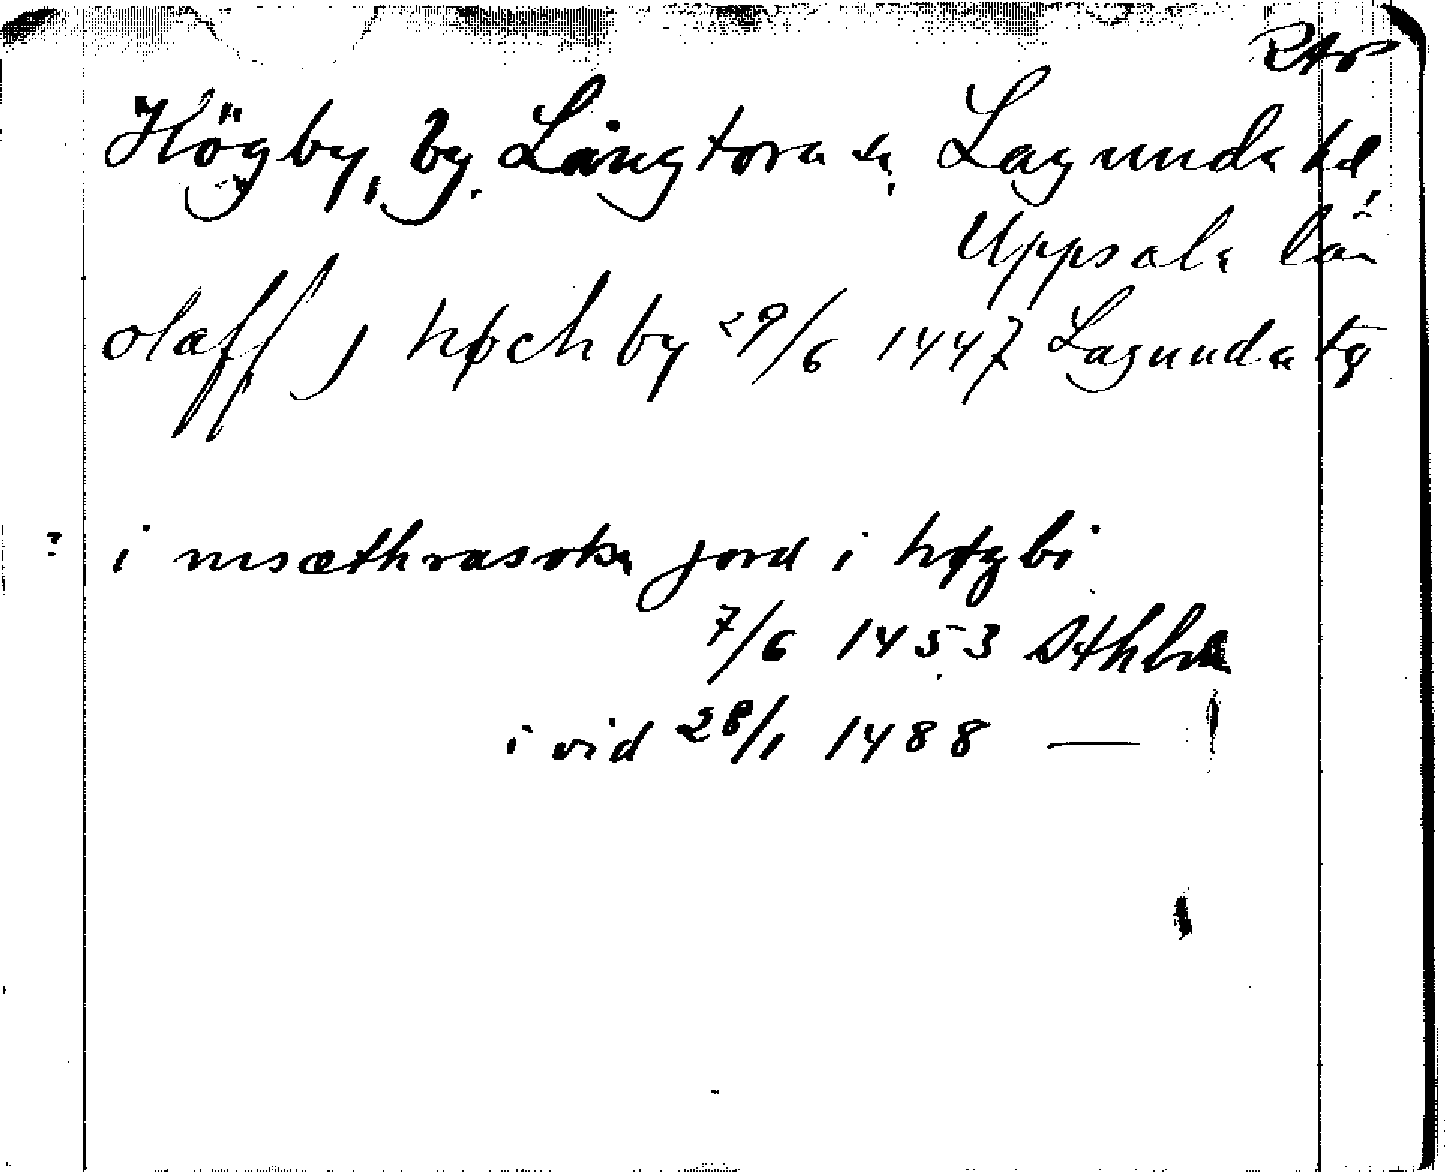 Högby, by. Långtora sn, Lagunda hd
Uppsala län
olaff j høchby 29/6 1447 Lagunda tg
i msæthrasokn jord i høgbi
7/6 1453 Sthlm
i vid 28/1 1488 —